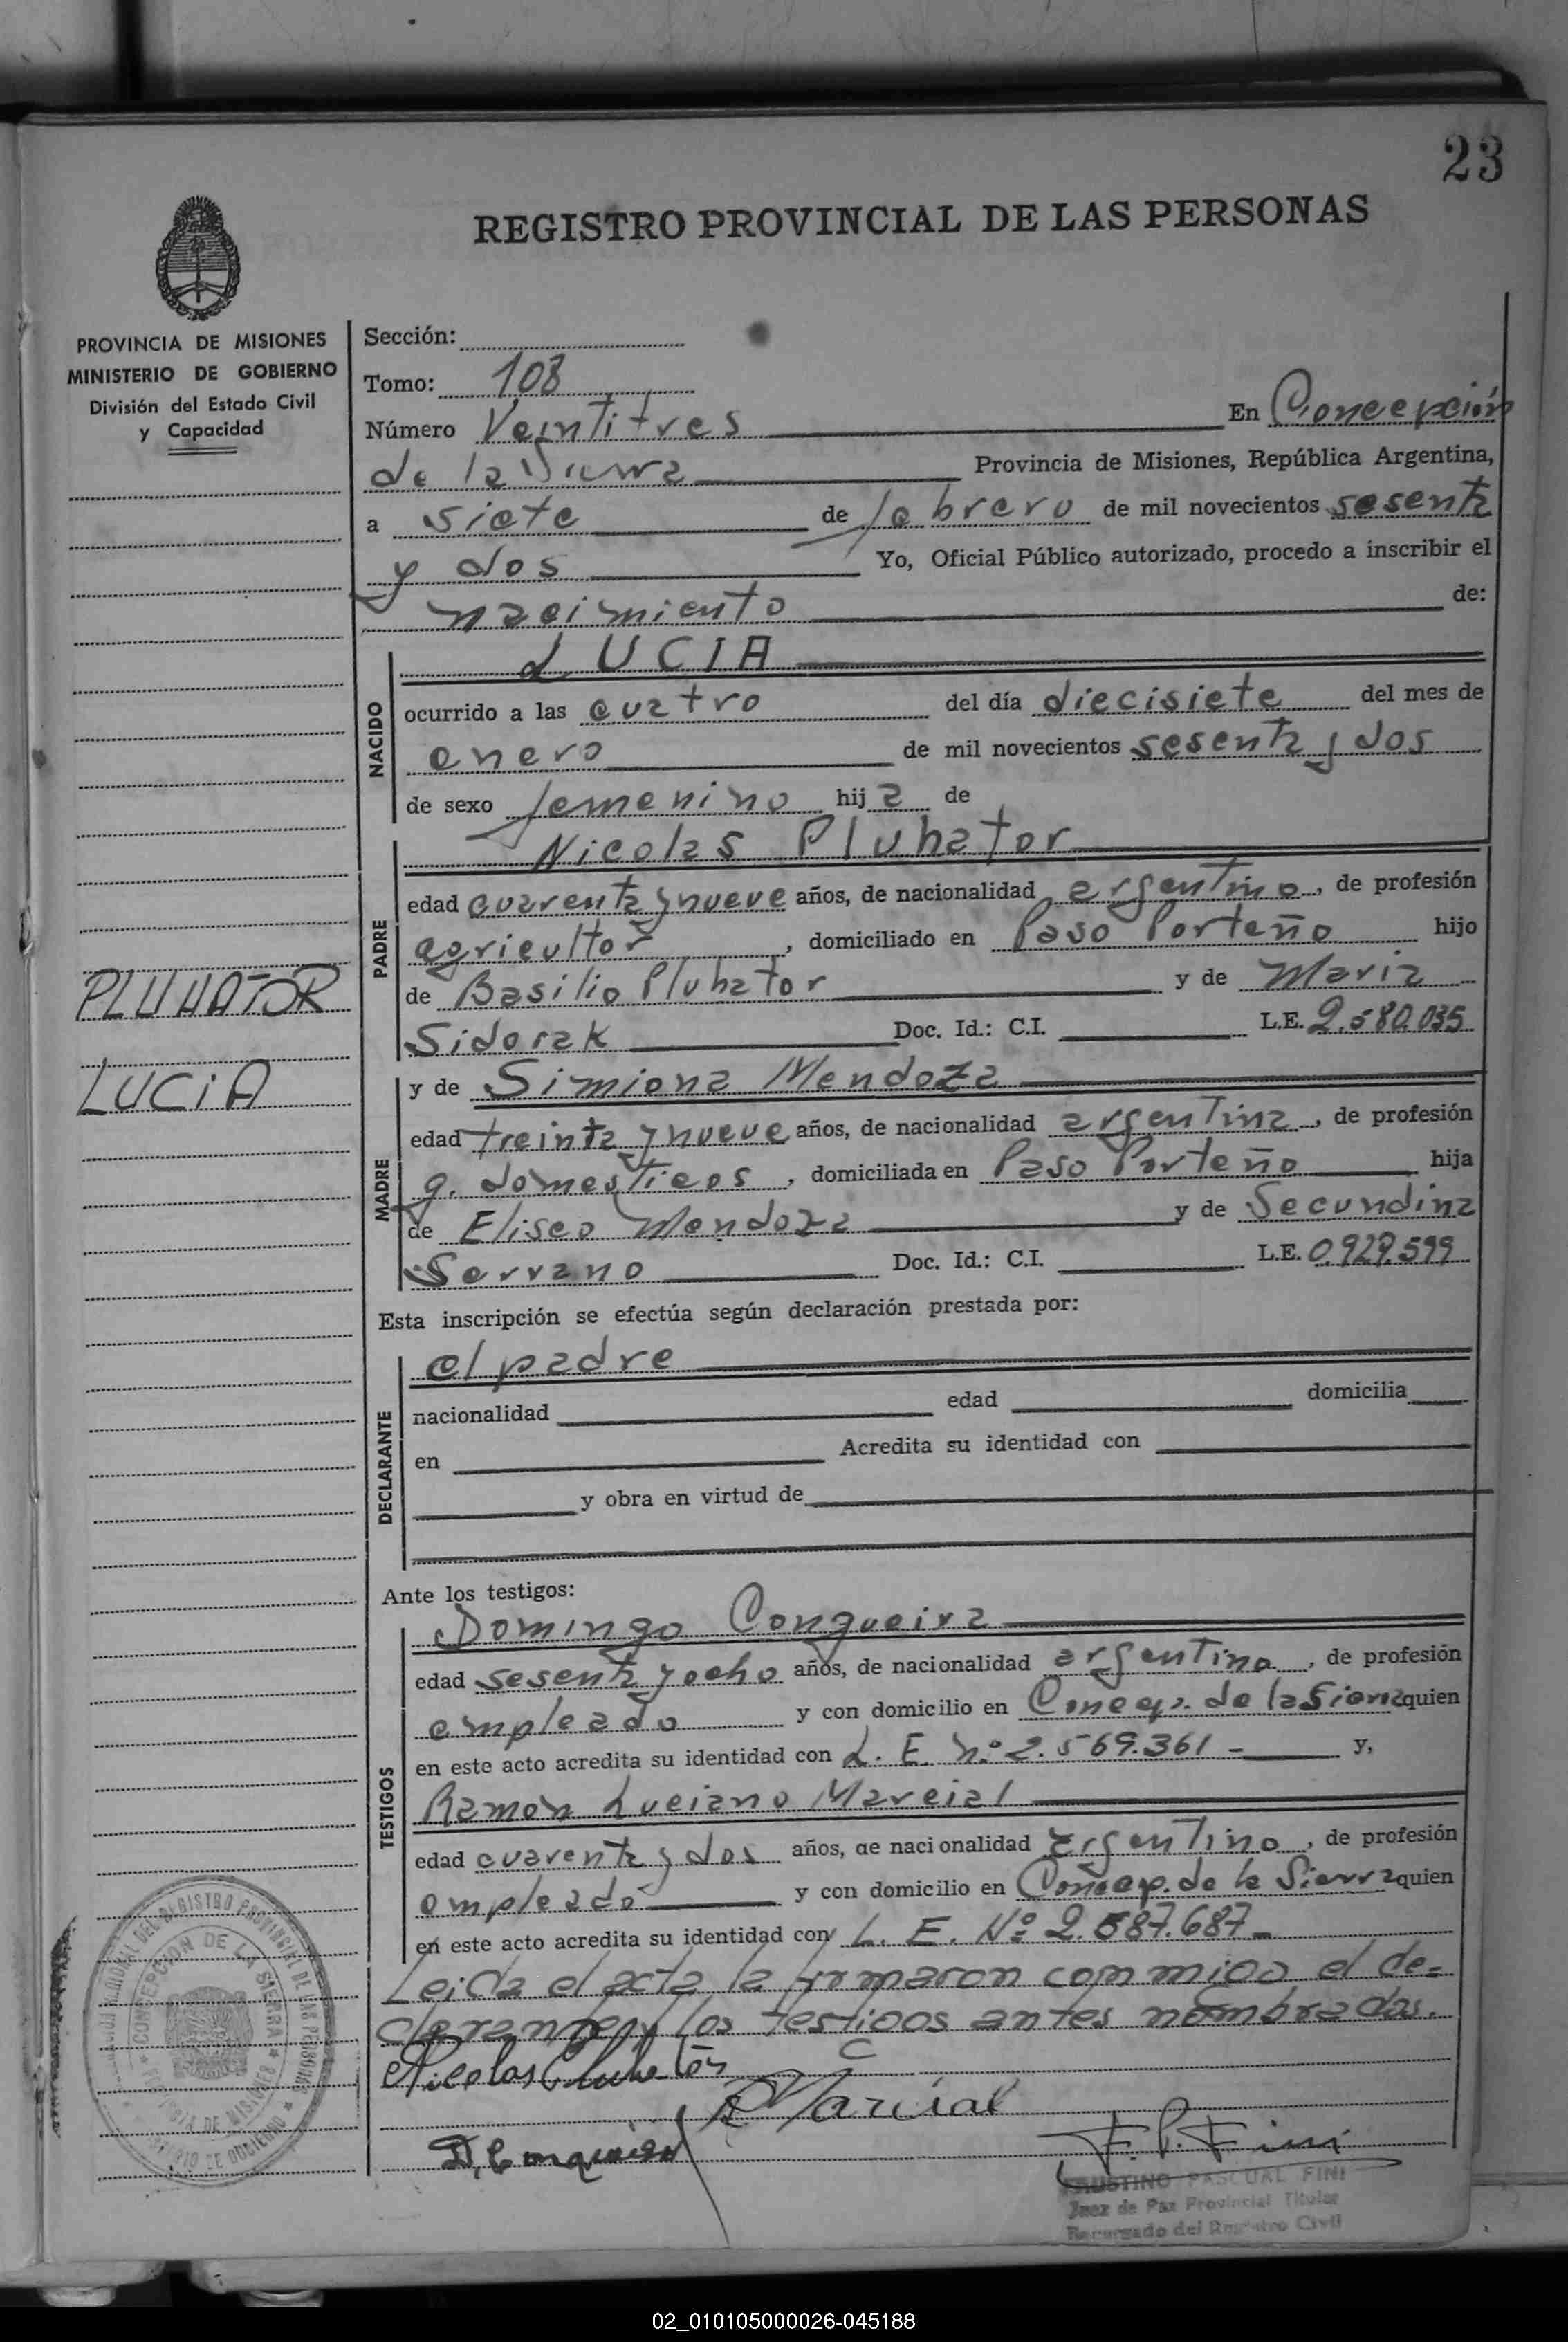 23
REGISTRO PROVINCIAL DE LAS PERSONAS
PROVINCIA DE MISIONES
MINISTERIO DE GOBIERNO
División del Estado Civil
y Capacidad
PLUHATOR
LUCIA
Sección:
Tomo: 108
Número Veintitres En Concepción
de la Sierra Provincia de Misiones, República Argentina,
a siete de febrero de mil novecientos sesenta
y dos Yo, Oficial Público autorizado, procedo a inscribir el
nacimiento de:
LUCIA
NACIDO
ocurrido a las cuatro del día diecisiete del mes de
enero de mil novecientos sesenta y dos
de sexo femenino hija de
Nicolas Pluhator
PADRE
edad cuarenta y nueve años, de nacionalidad argentino, de profesión
agricultor, domiciliado en Paso Porteño hijo
de Basilio Pluhator y de Maria
Sidorak Doc. Id.: C.I. L.E. 2.580.035
y de Simiona Mendoza
MADRE
edad treinta y nueve años, de nacionalidad argentina, de profesión
q. domesticos, domiciliada en Paso Porteño hija
de Eliseo Mendoza y de Secundina
Serrano Doc. Id.: C.I. L.E. 0.929.599
Esta inscripción se efectúa según declaración prestada por:
el padre
DECLARANTE
nacionalidad edad domicilia
en Acredita su identidad con
y obra en virtud de
Ante los testigos:
Domingo Congueira
TESTIGOS
edad sesenta y ocho años, de nacionalidad argentino, de profesión
empleado y con domicilio en Concep. de la Sierra quien
en este acto acredita su identidad con L. E. Nº 2.569.361 - y,
Ramón Luciano Marcial
edad cuarenta y dos años, de nacionalidad argentino, de profesión
empleado y con domicilio en Concep. de la Sierra quien
en este acto acredita su identidad con L. E. Nº 2.587.687 -
Leida el acta la firmaron conmigo el de=
clarante y los testigos antes nombrados.
Nicolas Pluhator
R Marcial
D. Congueira
F. P. Fini
FAUSTINO PASCUAL FINI
Juez de Paz Provincial Titular
Encargado del Registro Civil
CONCEPCION DE LA SIERRA
02_010105000026-045188